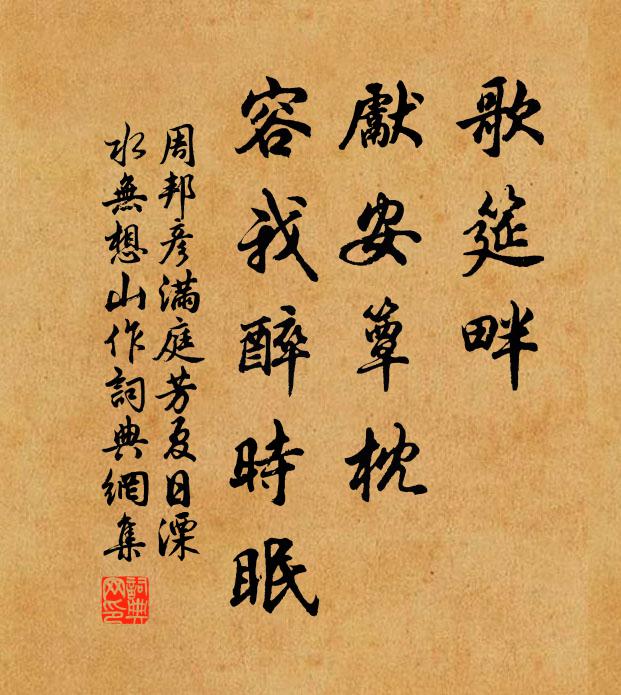 歌筵畔
獻安簟枕
容我醉時眠
周邦彥滿庭芳夏日溧
水無想山作詞典網集
詞典
网印